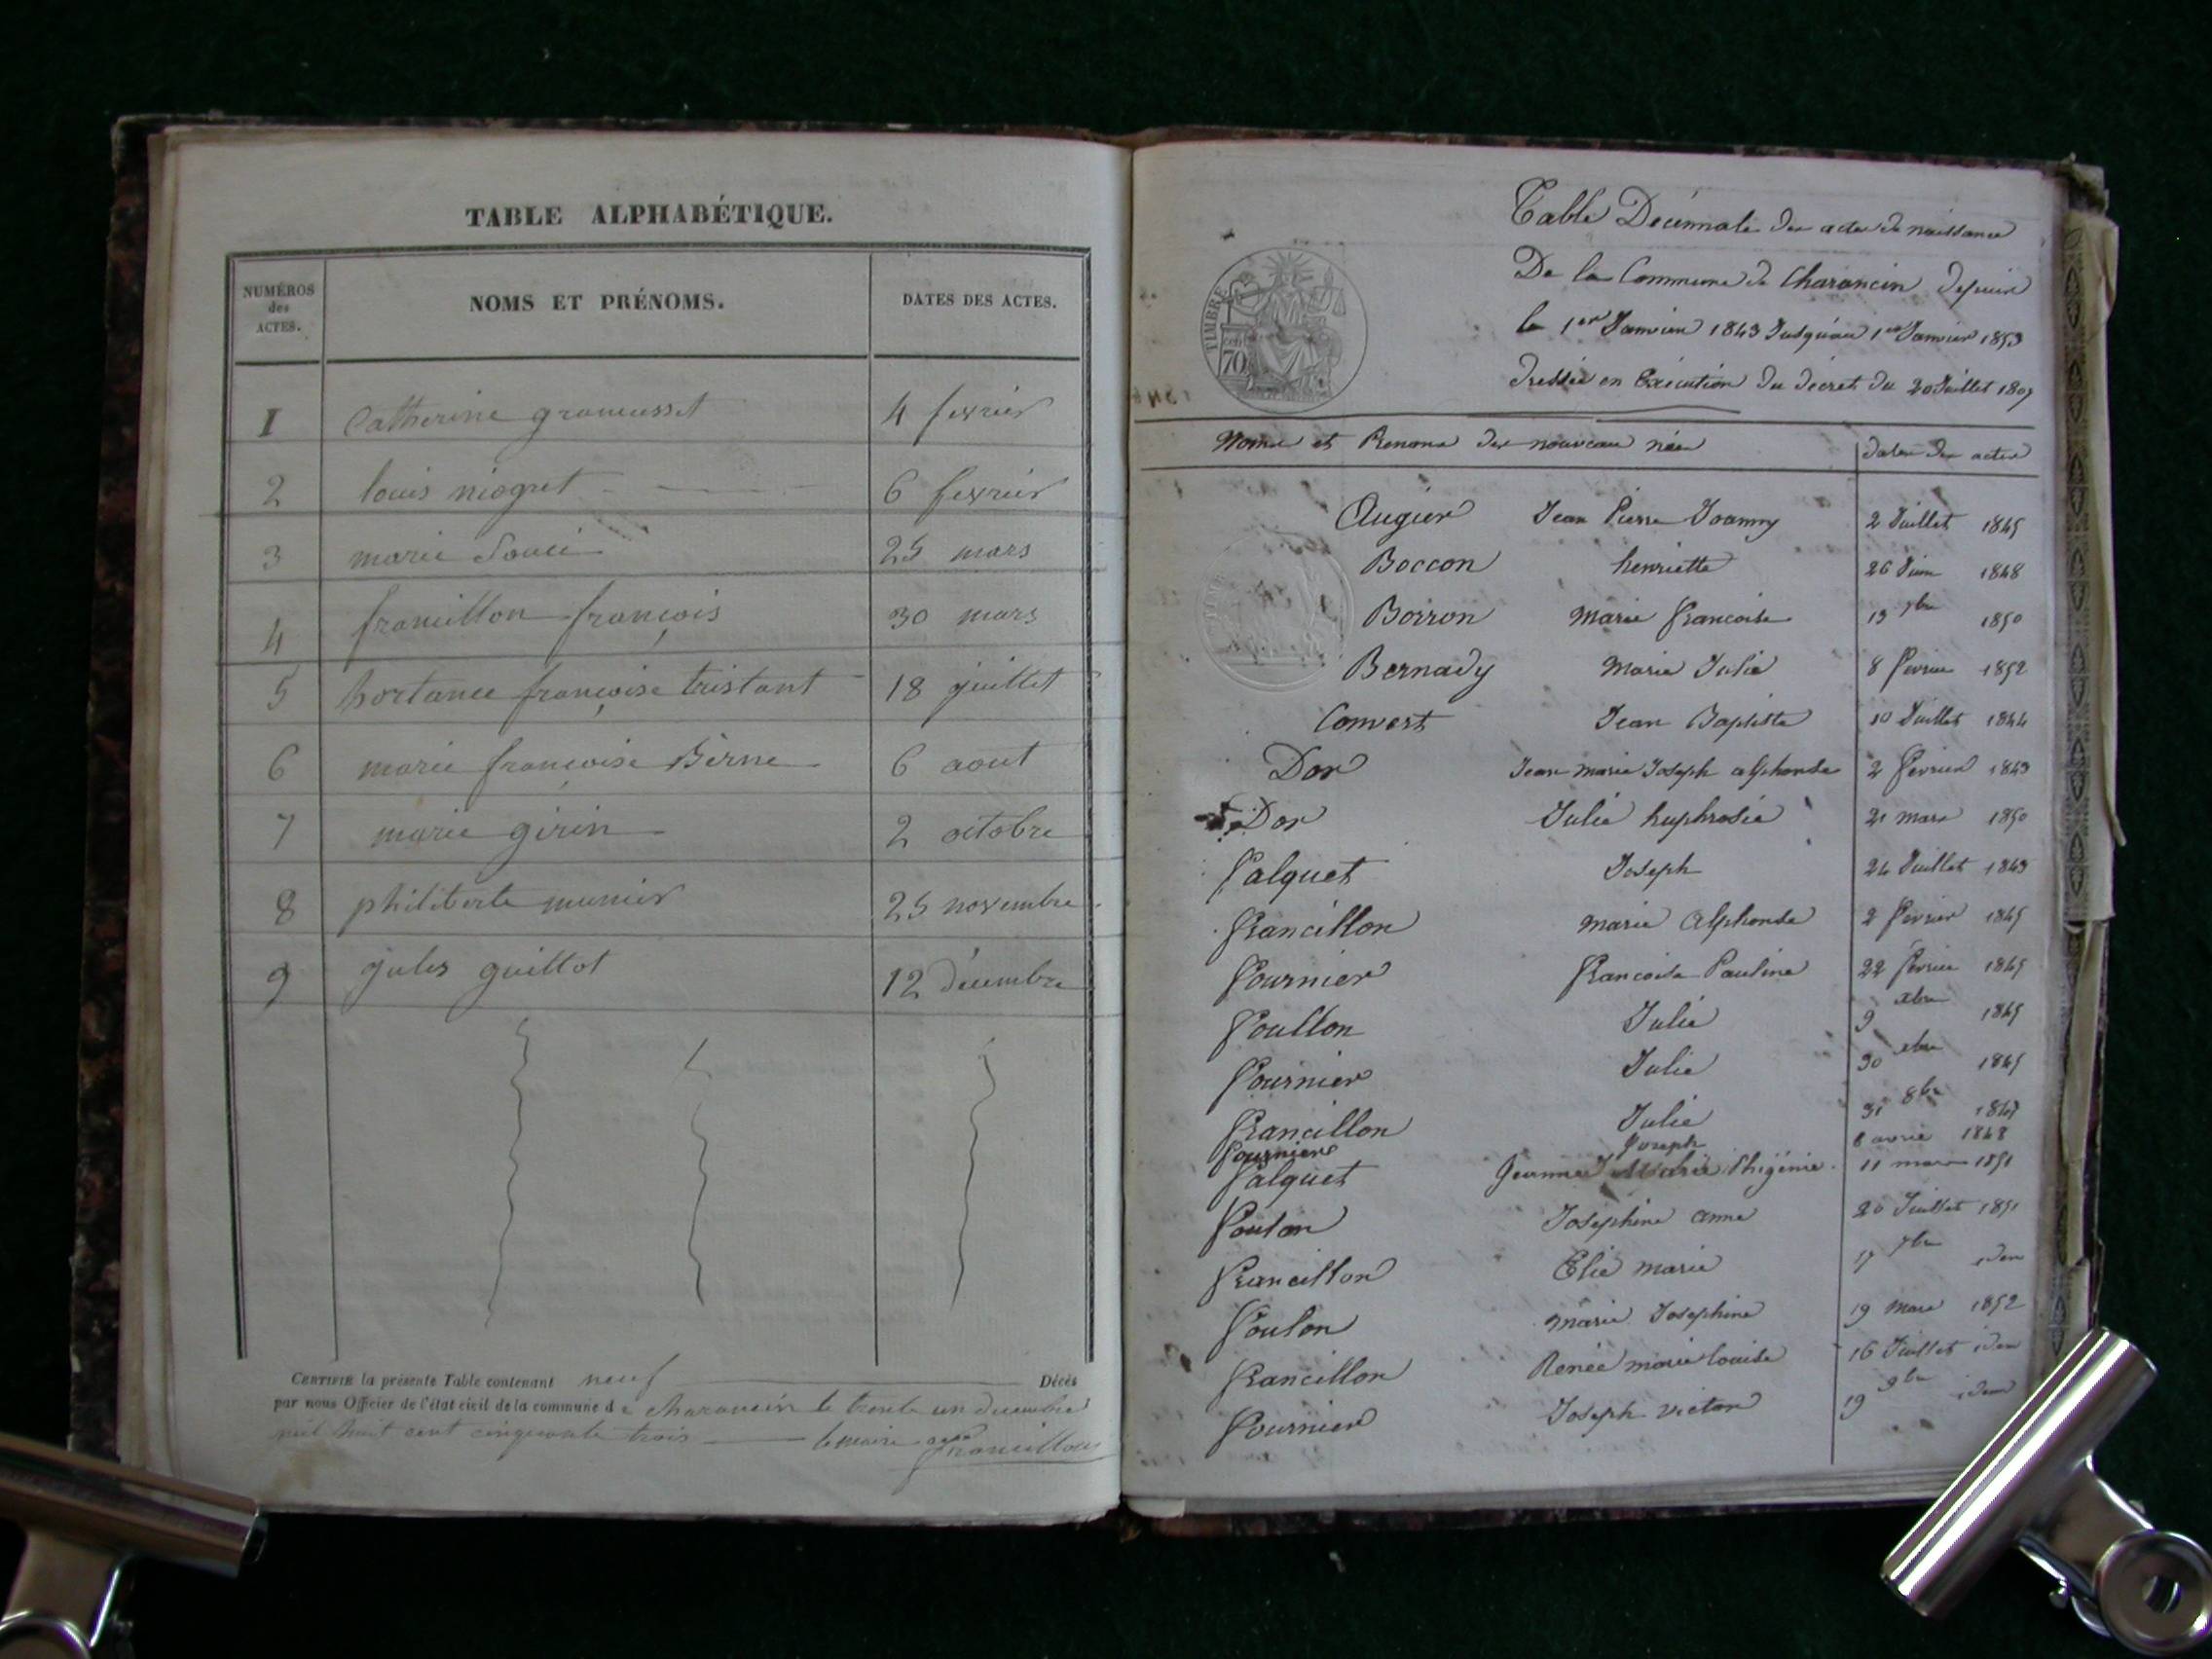 TABLE ALPHABÉTIQUE.
NUMÉROS des ACTES. NOMS ET PRÉNOMS. DATES DES ACTES.
1 Catherine 4 fevrier
2 louis niogret 6 fevrier
3 marie 25 mars
4 francillon françois 30 mars
5 hortance françoise tristant 18 juillet
6 marie françoise Berne 6 aout
7 marie girin 2 octobre
8 philiberte munier 25 novembre
9 jules guillot 12 décembre
CERTIFIÉ la présente Table contenant neuf Décès
par nous Officier de l'état civil de la commune de charancin le trente un decembre
mil huit cent cinquante trois le maire francillon
Table Décennale des actes de naissance
De la Commune de Charancin depuis
le 1er Janvier 1843 Jusqu'au 1er Janvier 1853
dressée en Exécution du décret du 20 Juillet 1807
TIMBRE
70
Noms et Prenoms des nouveau nées dates des actes
Augier Jean Pierre Joanny 2 Juillet 1845
Boccon henriette 26 Juin 1848
Borron Marie francoise 13 7bre 1850
Bernady Marie Julie 8 fevrier 1852
Convert Jean Baptiste 10 Juillet 1844
Dor Jean marie Joseph alphonse 2 fevrier 1843
Dor Julie huphrosie 21 mars 1850
falquet Joseph 24 Juillet 1843
francillon marie Alphonse 2 fevrier 1845
fournier francoise Pauline 22 fevrier 1845
foullon Julie 9 xbre 1845
fournier Julie 30 xbre 1845
francillon Julie 31 8bre 1847
fournier Joseph 8 avril 1848
falquet Jeanne Marie Phigénie 11 mars 1851
foulon Josephine anne 20 Juillet 1851
francillon Elie marie 17 7bre idem
foulon marie Josephine 19 Mars 1852
francillon Renée marie louise 16 Juillet idem
fournier Joseph victor 19 9bre idem